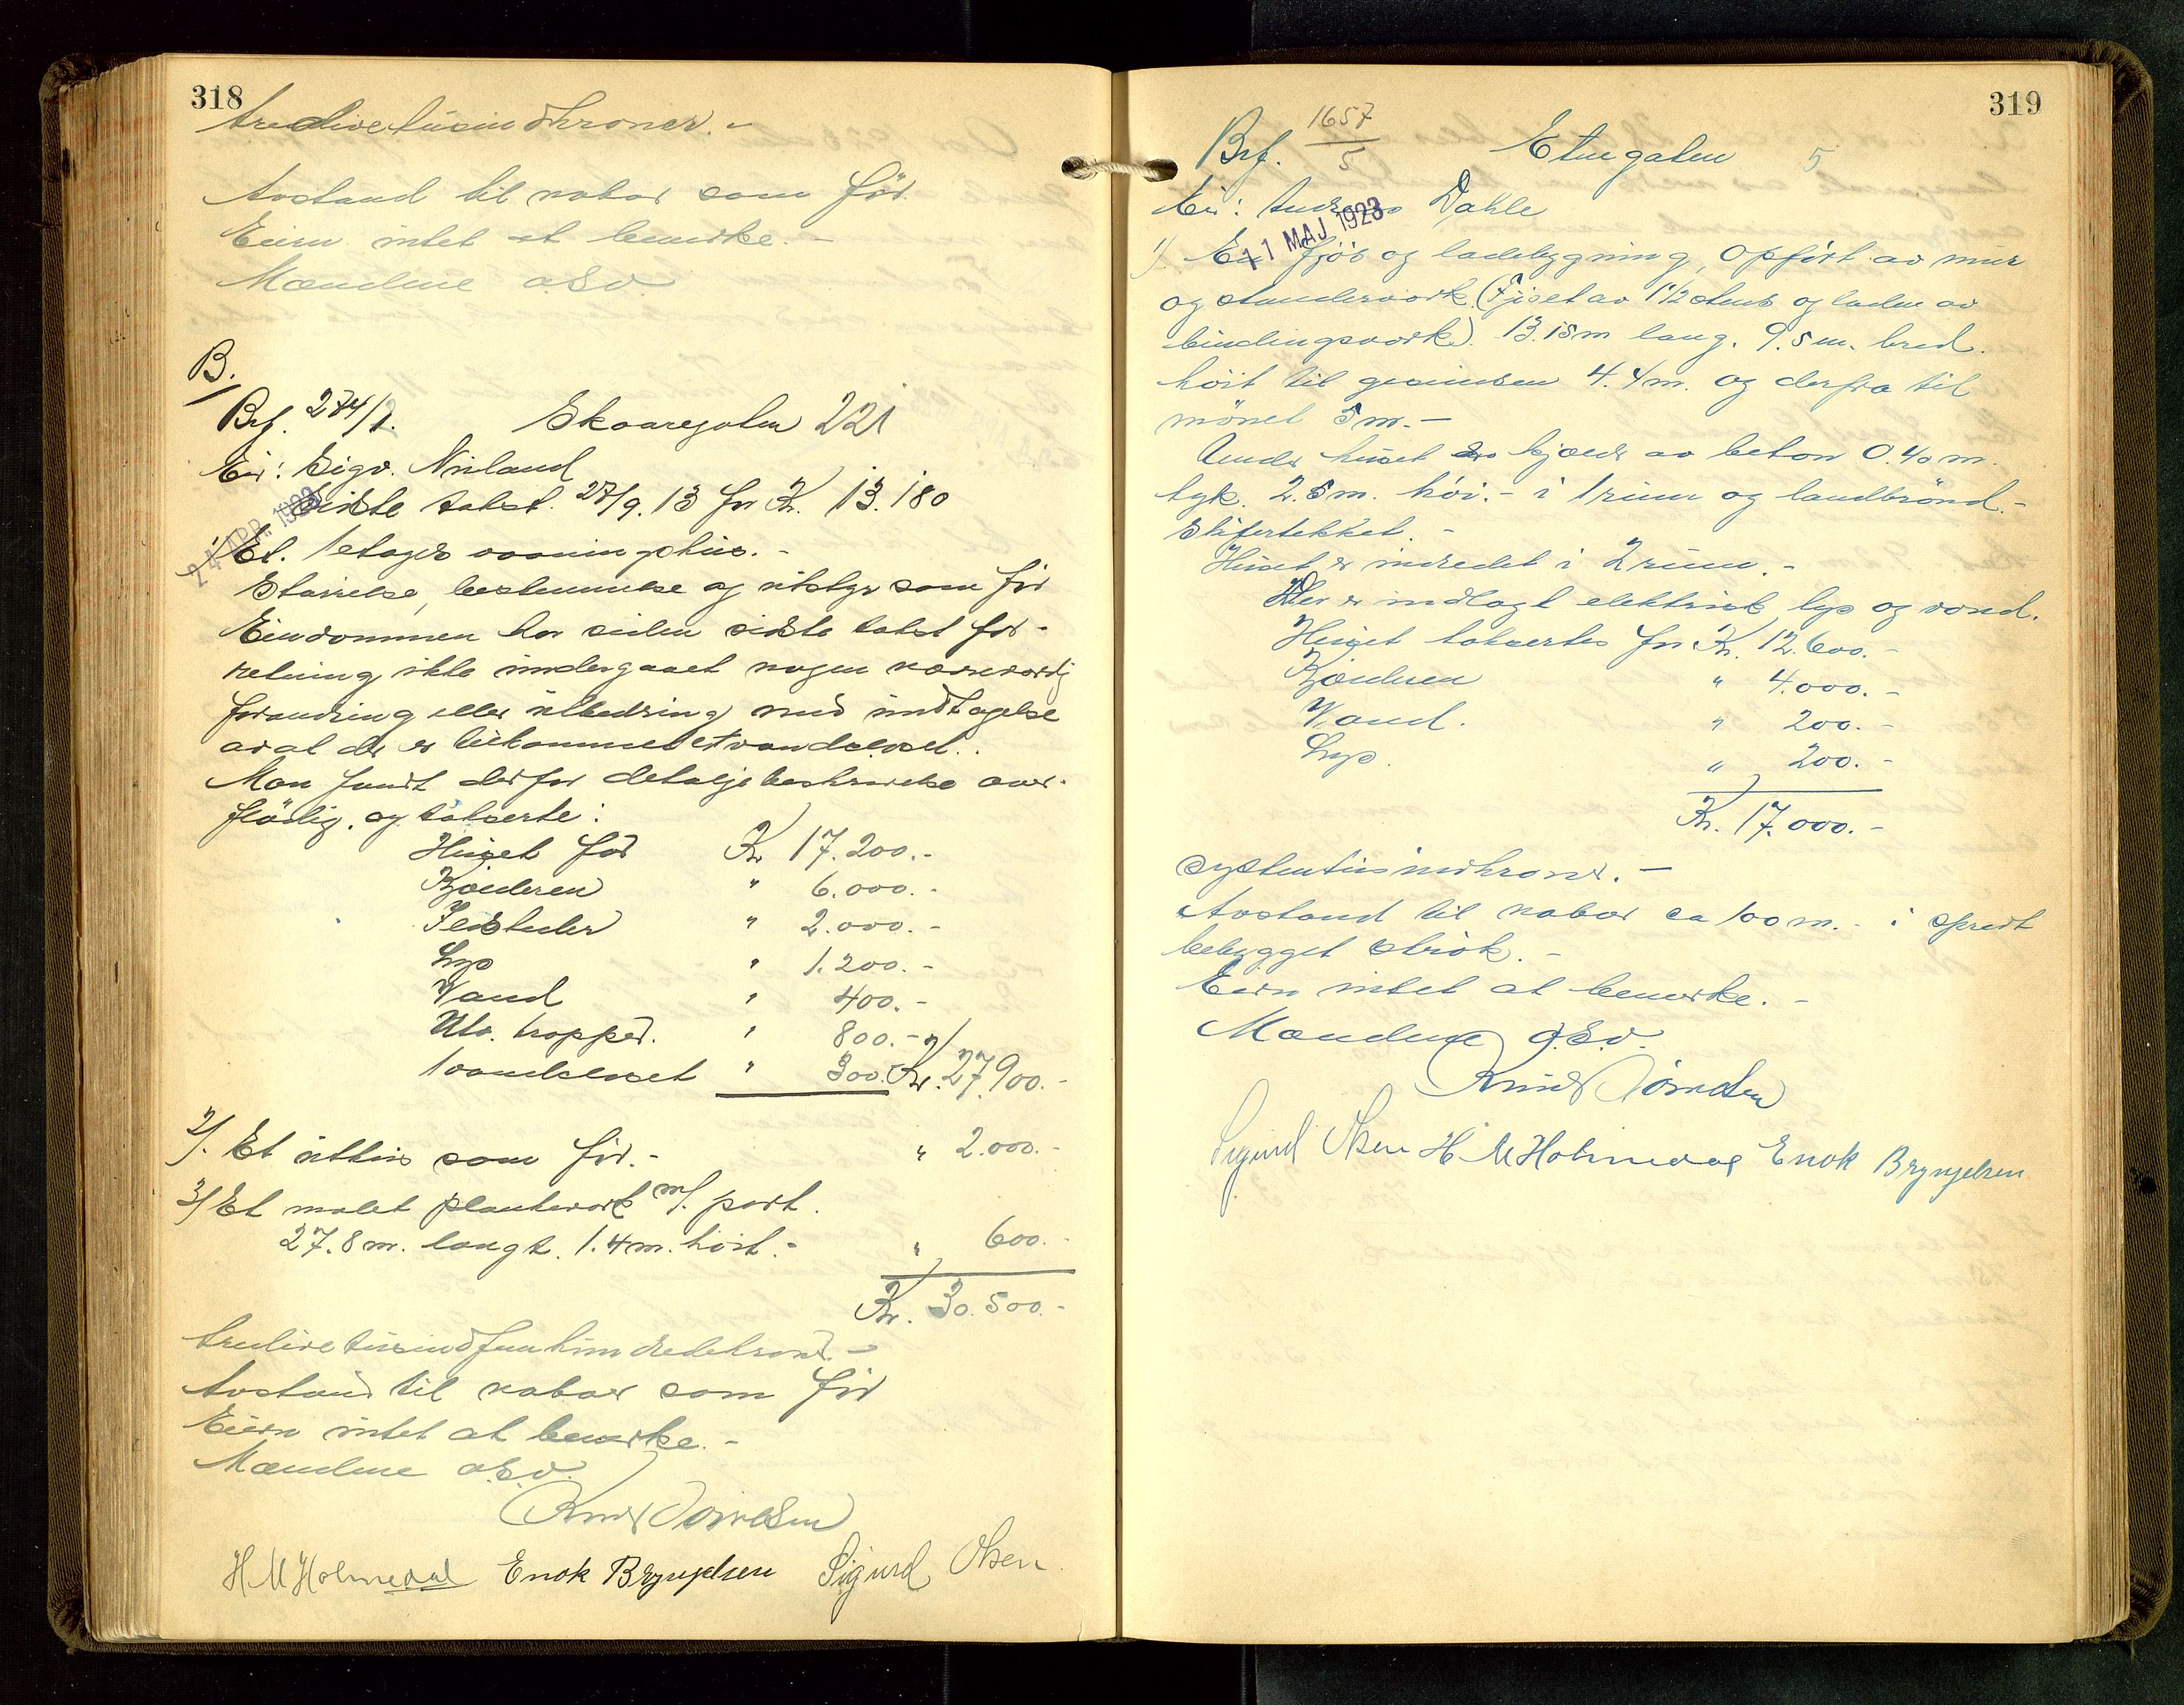 318
tredivetusindkroner.-
Avstand til nabar som før.
Eiern intet at bemerke.-
Mændene o.s.v.
B.
Brf. 274/1. Skaaregaten 221
Eier: Sigv. Niland
Sidste takst. 27/9.13 for Kr. 13.180
24 APR. 1923
1/ Et. 1etages vaaningshus.-
Størrelse, bestemmelse og utstyr som før
Eiendommen har siden sidste takst for-
retning ikke undergaaet nogen næverdig
forandring eller utbedring med undtagelse
av at der er tilkommet et vandcloset..
Man fandt derfor detaljebeskrivelse over-
flødig. og takserte:
Huset før Kr. 17.200.-
Kjælderen " 6.000.-
Ildsteder " 2.000.-
Lys " 1.200.-
Vand " 400.-
Utv. trapper. " 800.-
1 vandcloset " 300. Kr. 27.900.-
2/. Et uthus som før.- " 2.000.-
3/ Et malet planteverk m/. port.
27.8 m. langt. 1.4 m. høit.- " 600.-
Kr. 30.500.-
tredivetusindfemhundredekroner.-
Avstand til nabar som før
Eiern intet at bemerke.-
Mændene o.s.v.
Knud Tørresen
H. M Holmedal Enok Bryngelsen Sigurd Olsen
319
Brf. 1657/5 Etnegaten 5
Eier: Andreas Dahle
11 MAJ 1923
1) En fjøs og ladebygning, opført av mur
og stenderverk. (Fjøset av 1 1/2 stens og laden av
bindingsverk). 13.15 m lang. 9.5 m. bred.
høit til gesimsen 4.4 m. og derfra til
mønet 5 m.-
Under huset er kjælder av beton 0.40 m.
tyk. 2.5 m. høi.- i 1 rum og landbrønd.-
Skifertekket.-
Huset er indredet i 2 rum.-
Der er indlagt elektrisk lys og vand.
Huset takseres for Kr. 12.600.-
Kjælderen " 4.000.-
Vand. " 200.-
Lys. " 200.-
Kr. 17.000.-
syttentusindkroner.-
Avstand til nabar ca 100 m.- i spredt
bebygget strøk.-
Eiern intet at bemerke.-
Mændene o.s.v.
Knud Tørresen
Sigurd Olsen H. M Holmedal Enok Bryngelsen